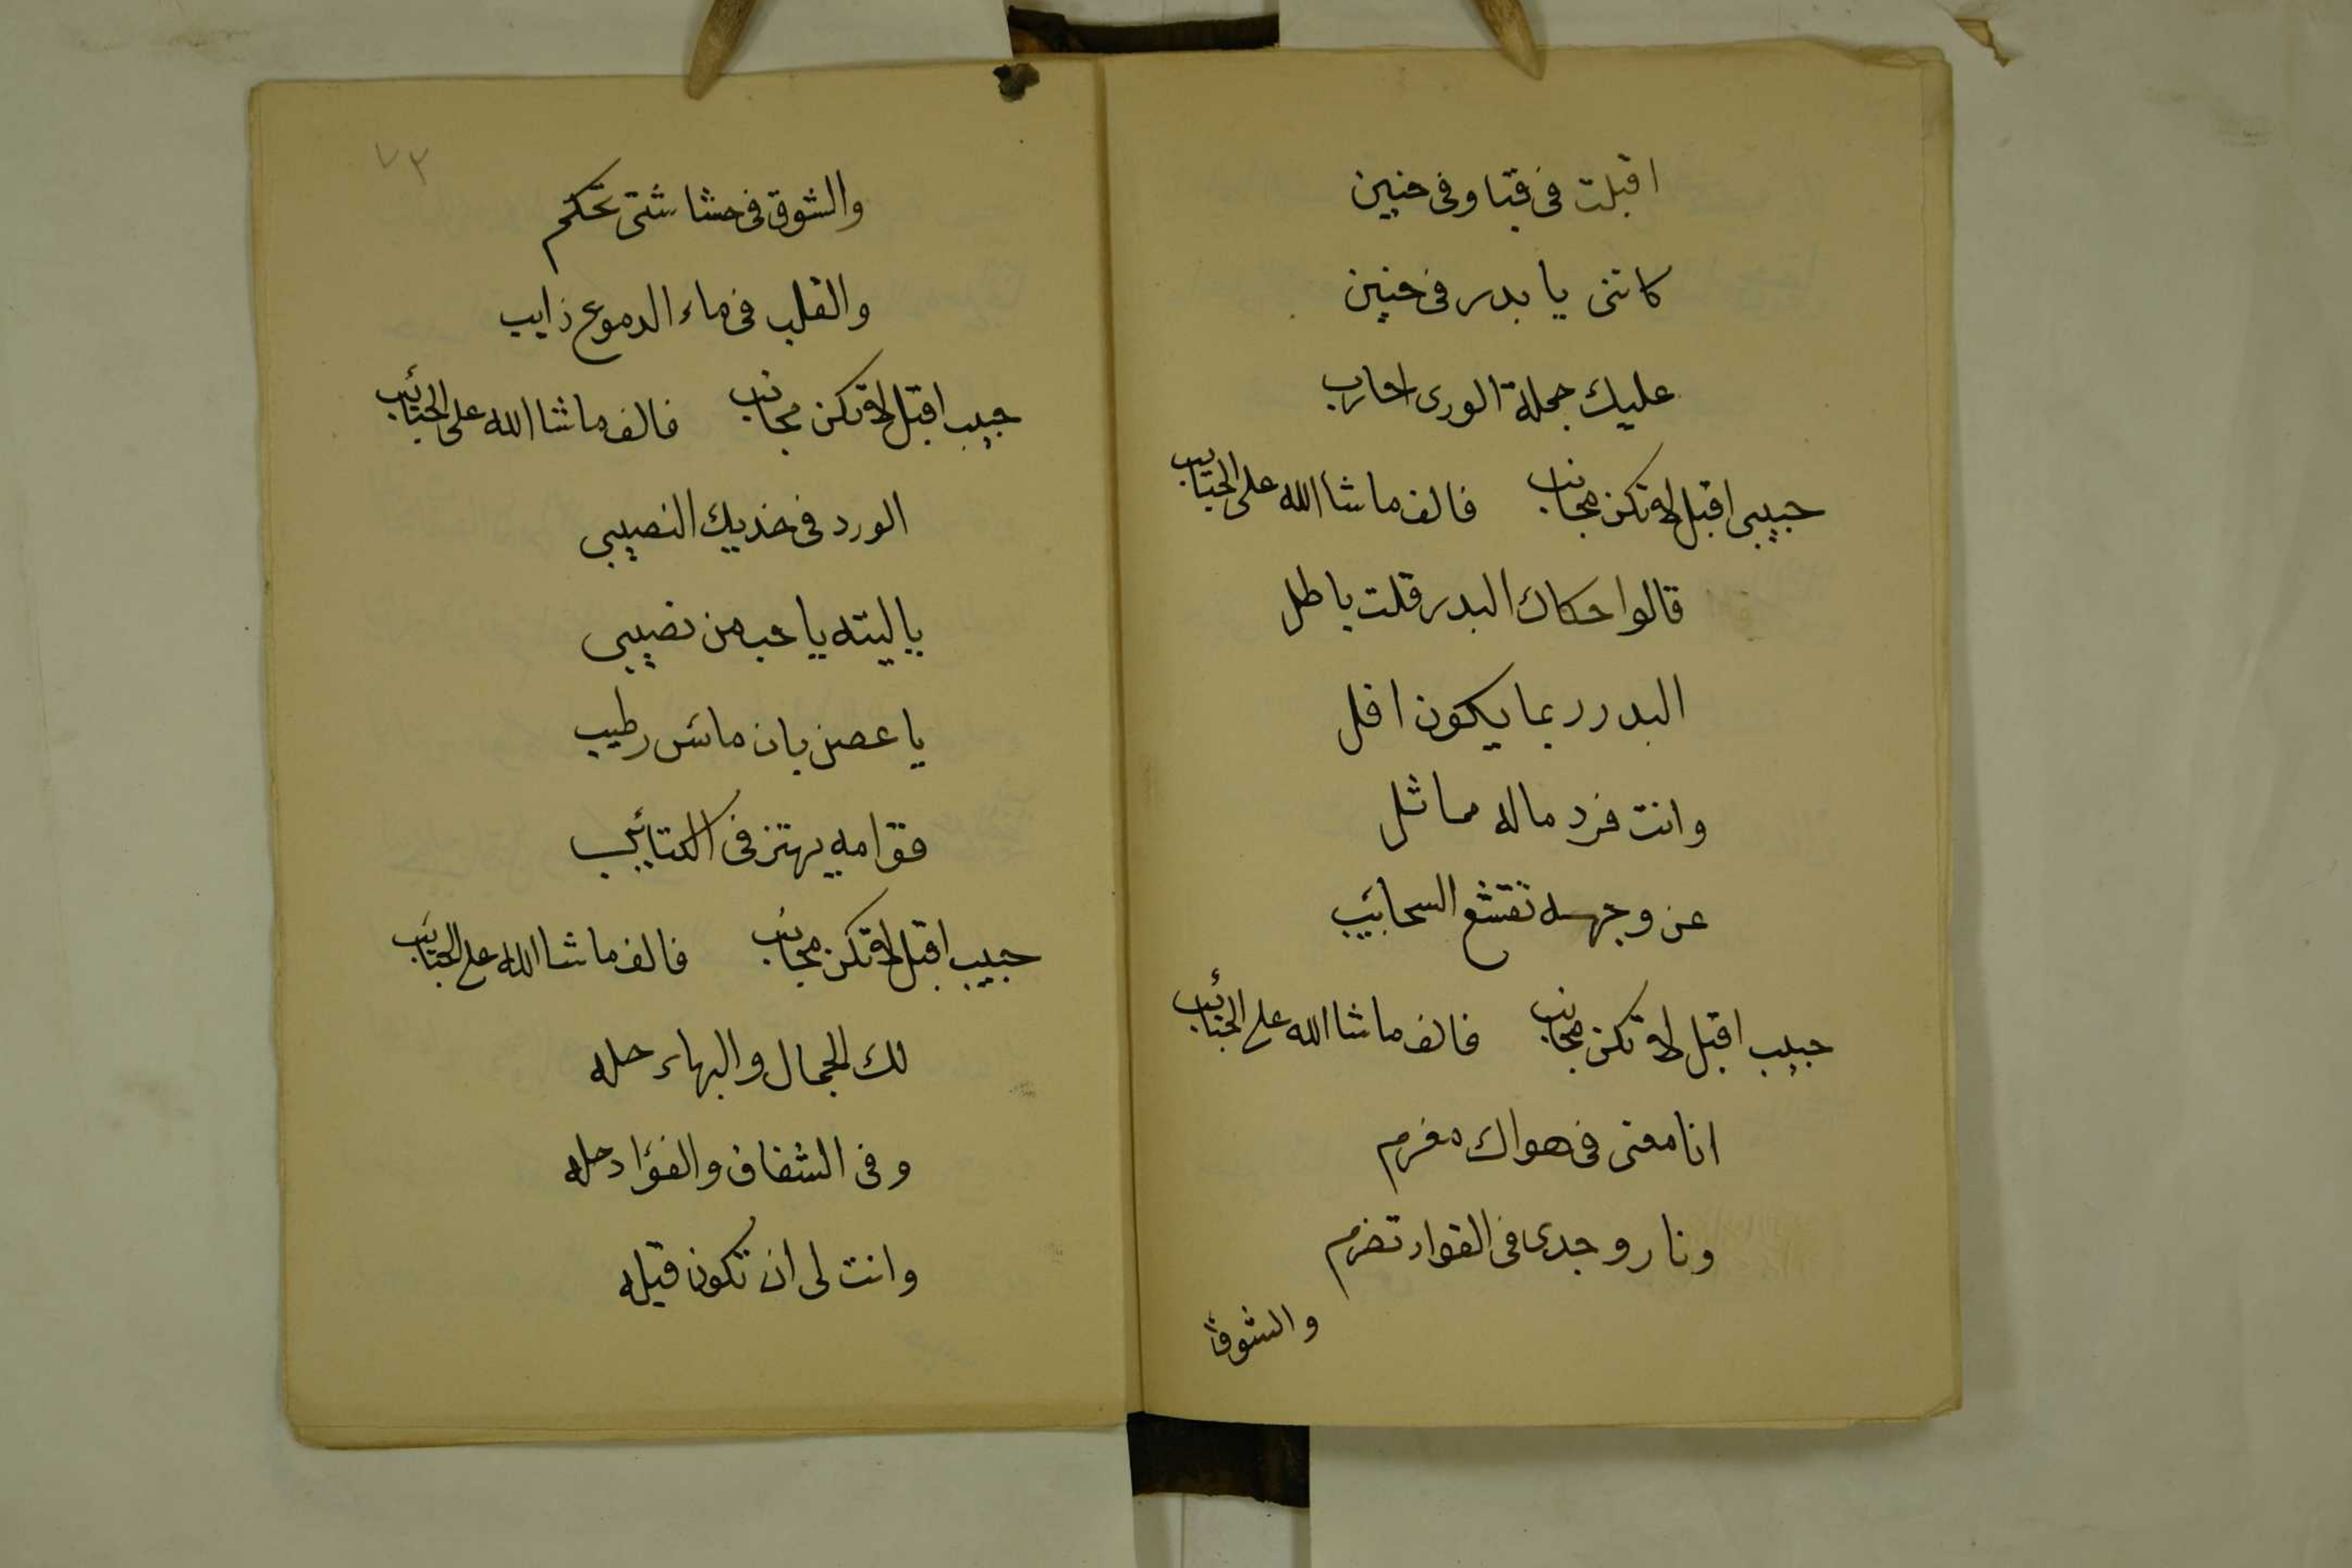 اقبلت فى قبا وفى حنين
كاننى يا بدر فى حنين
عليك جملة الورى احارب
حبيبى اقبل لا تكن مجانب فالف ما شا الله على الحبائب
قالوا حكاك البدر قلت باطل
البدر ربما يكون افل
وانت فرد ماله مماثل
عن وجهه تقشع السحائب
حبيب اقبل لا تكن مجانب فالف ما شا الله على الحبائب
انا معنى فى هواك مغرم
ونار وجدى فى الفواد تضرم
والشوق
٧٣
والشوق فى حشاشتى تحكم
والقلب فى ماء الدموع زايب
حبيب اقبل لا تكن مجانب فالف ما شا الله على الحبائب
الورد فى خديك النصيبى
ياليته يا حب من نصيبى
يا عصن بان مائس رطيب
فقوامه يهتز فى الكتائب
حبيب اقبل لا تكن مجانب فالف ما شا الله على الحبائب
لك الجمال والبهاء حله
وفى الشغاف والفؤاد حله
وانت لى ان تكون قبله